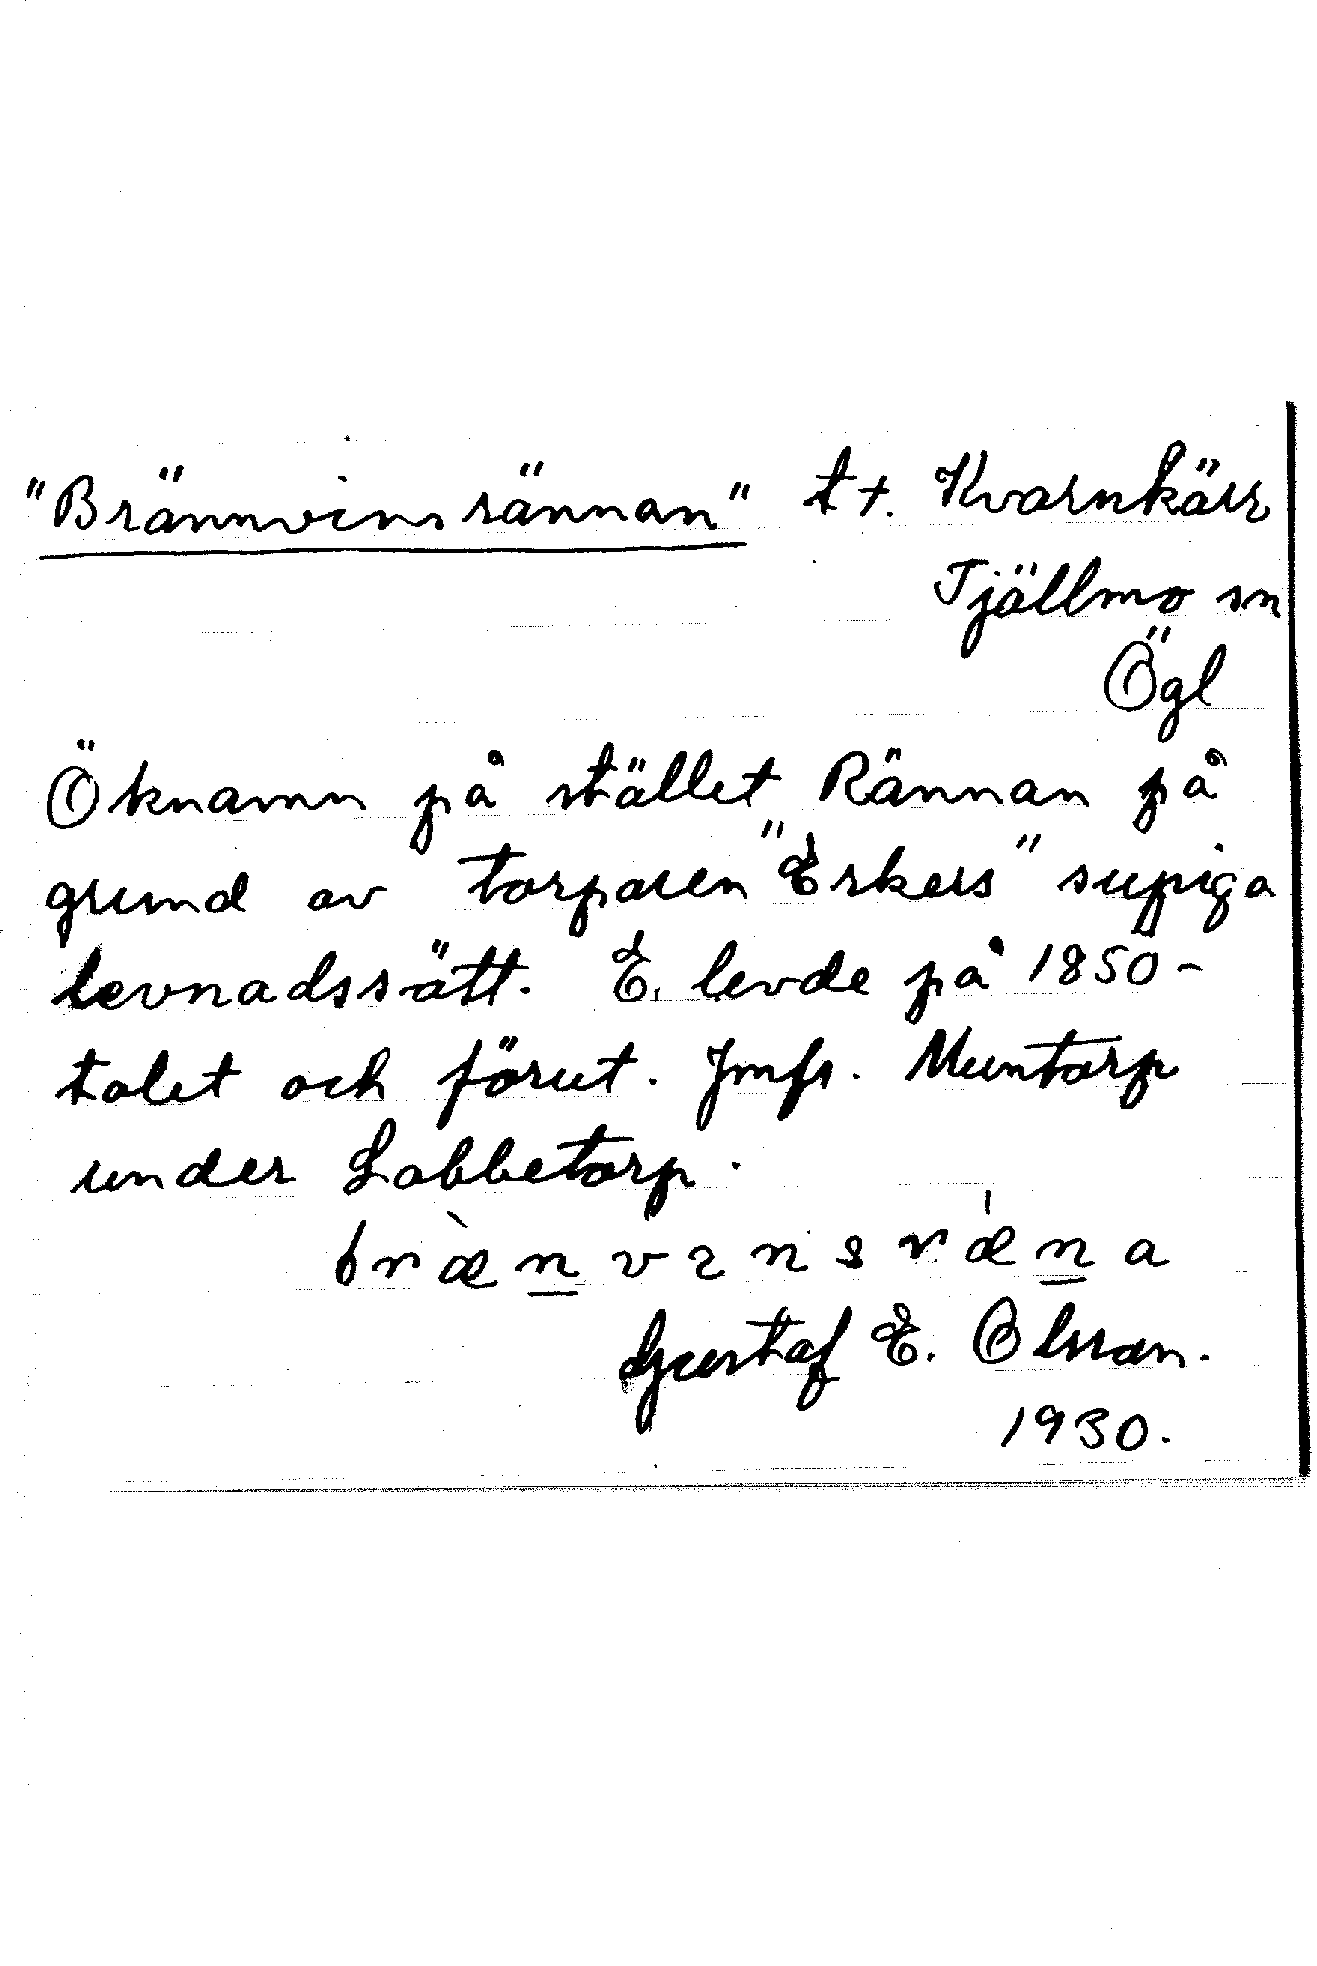 "Brännvinsrännan" tt. Kvarnkärr
Tjällmo sn
Ögl
Öknamn på stället Rännan på
grund av torparen "Erkers" supiga
levnadssätt. E. levde på 1850-
talet och förut. Jmfr. Muntorp
under Labbetorp.
bræ̀nvɪnsræ̍na
Gustaf E. Olsson.
1930.